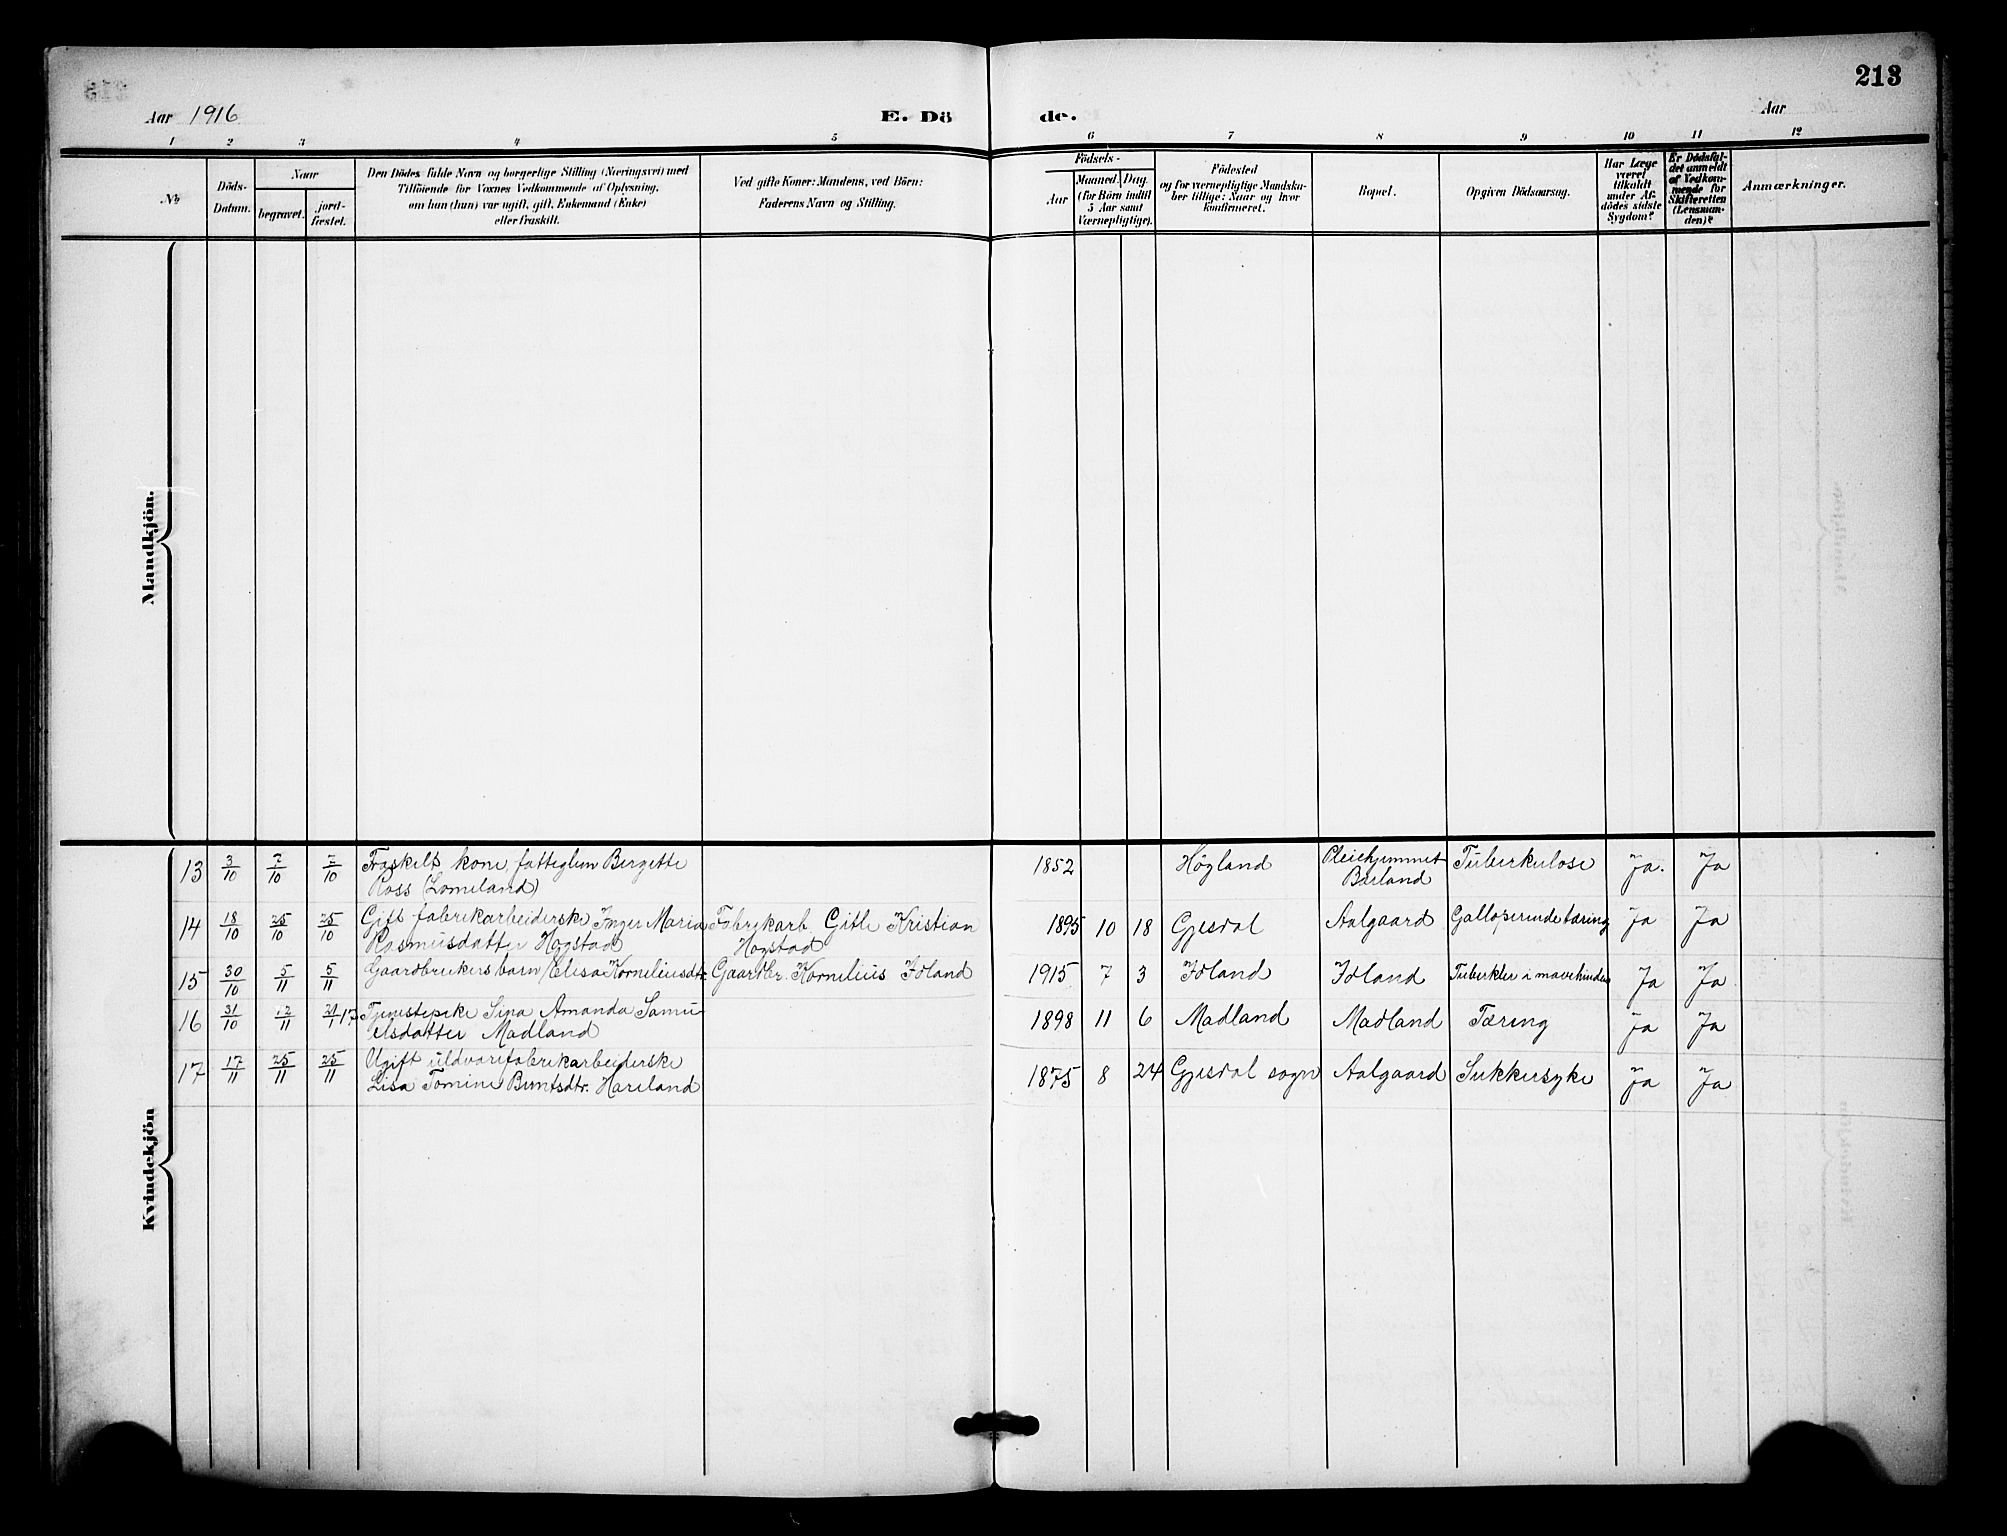 213
Aar 1916
E. Dö
de.
Aar
1 2 3 4 5 6 7 8 9 10 11 12
No
Döds-
Datum.
Naar
begravet.
jord-
fæstet.
Den Dödes fulde Navn og borgerlige Stilling (Næringsvei) med
Tilföiende for Voxnes Vedkommende af Oplysning,
om han (hun) var ugift, gift, Enkemand (Enke)
eller fraskilt.
Ved gifte Koner: Mandens, ved Börn:
Faderens Navn og Stilling.
Födsels-
Aar
Maaned. Dag.
(for Börn indtil
5 Aar samt
Værnepligtige).
Födested
og for værnepligtige Mandska-
ber tillige: Naar og hvor
konfirmeret.
Bopæl.
Opgiven Dödsaarsag.
Har Læge
været
tilkaldt
under Af-
dödes sidste
Sygdom?
Er Dödsfal-
det anmeldt
af Vedkom-
mende for
Skifteretten
(Lensman-
den)?
Anmærkninger.
Mandkjön.
Kvindekjön
13 3/10 7/10 7/10 Fraskilt kone, fattiglem Bergette
Ross (Lomeland)
1852 Høgland Pleiehjemmet
Børland Tuberkulose Ja. Ja
14 18/10 25/10 25/10 Gift fabrikarbeiderske Inger Maria
Rasmusdatter Hogstad
Fabrikarb. Gitle Kristian
Hogstad
1895 10 18 Gjesdal Aalgaard Galloperende tæring Ja Ja
15 30/10 5/11 5/11 Gaardbrukers barn Elisa Korneliusdtr.
Gaardbr. Kornelius Idland
1915 7 3 Idland Idland Tuberkler i mavehinden Ja Ja
16 31/10 12/11 21/1 17 Tjenestepike Sina Amanda Samu-
elsdatter Madland
1898 11 6 Madland Madland Tæring Ja Ja
17 17/11 25/11 25/11 Ugift uldvarefabrikarbeiderske
Lisa Tomine Berntsdtr. Haveland
1875 8 24 Gjesdal sogn Aalgaard Sukkersyke Ja Ja